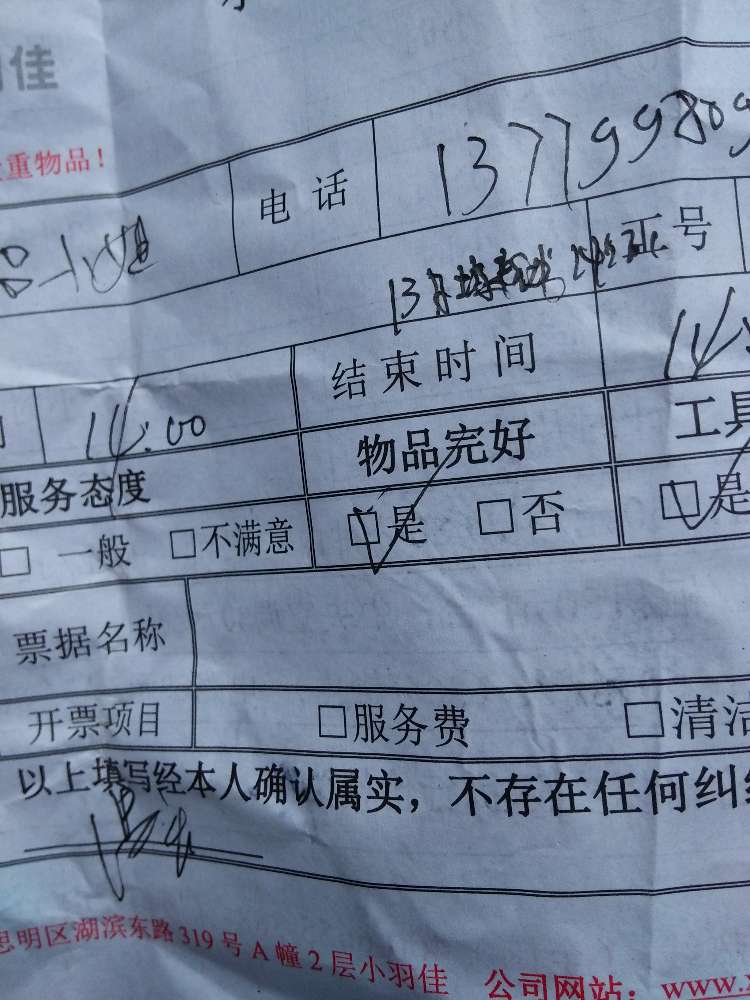 羽佳
重物品！
电话 137799809
工号
结束时间
14:00
服务态度 物品完好 工具
□ 一般 □不满意 □是 □否 □是
票据名称
开票项目 □服务费 □清洁
以上填写经本人确认属实，不存在任何纠纷
思明区湖滨东路319号A幢2层小羽佳 公司网站：www.